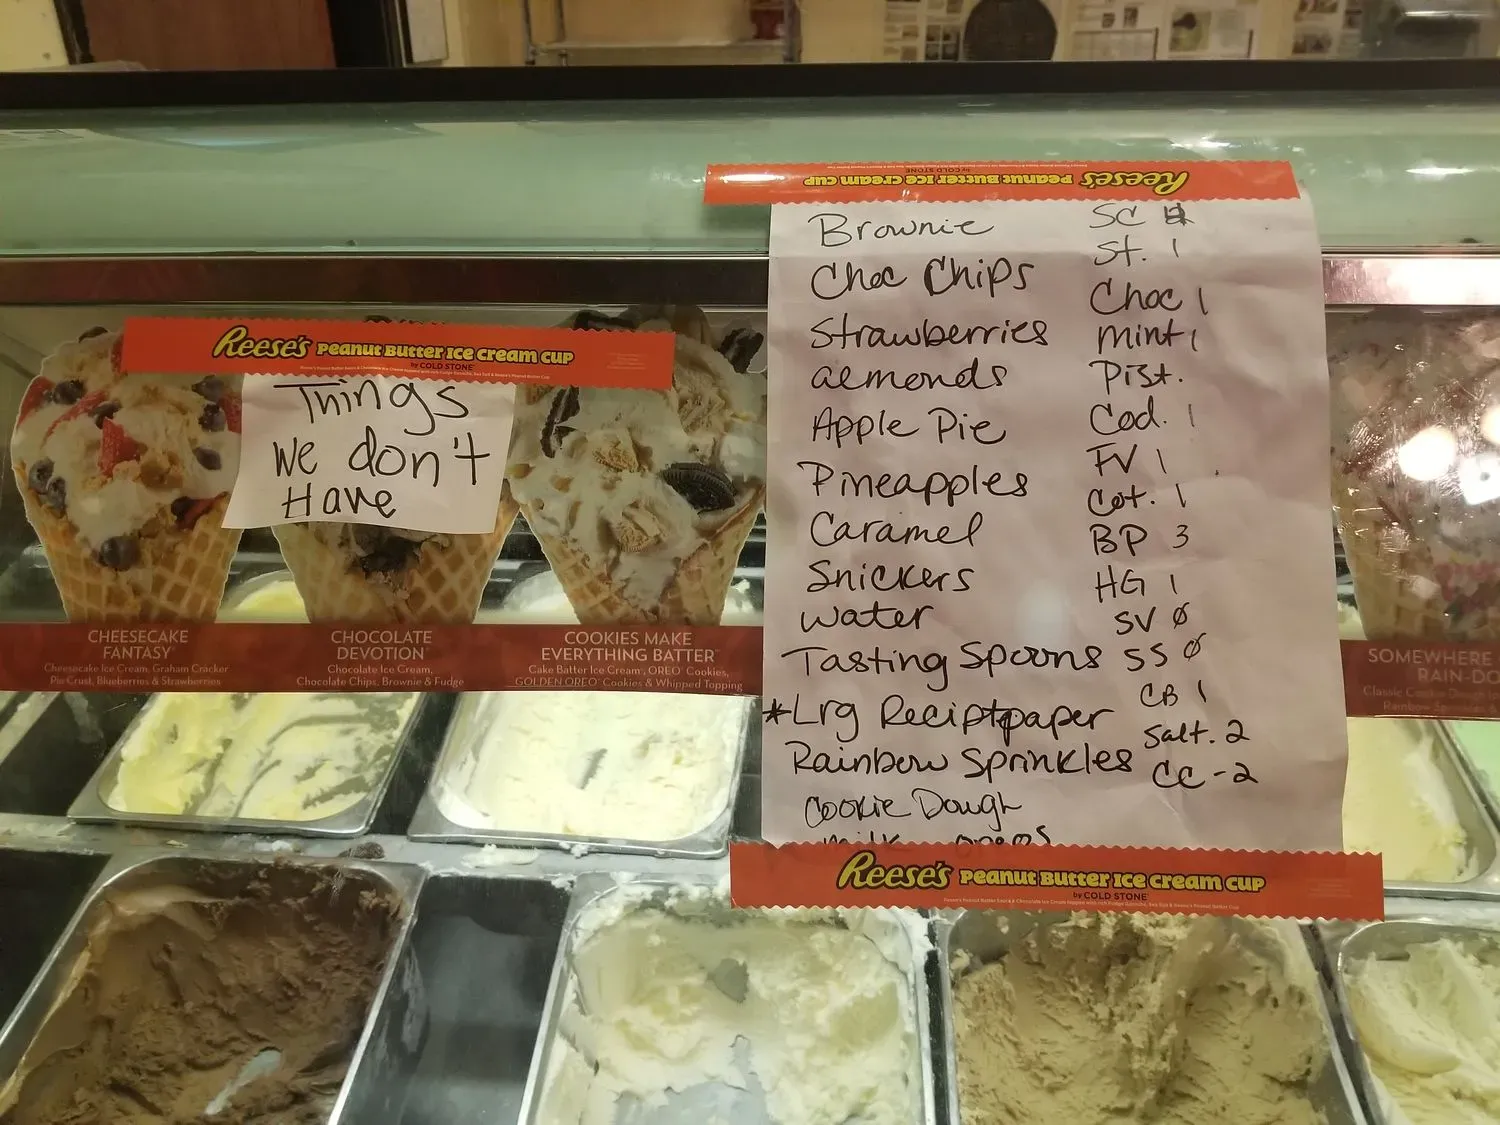 Reese's Peanut Butter Ice Cream Cup
by COLD STONE
Things
we don't
Have
CHEESECAKE
FANTASY™
Cheesecake Ice Cream, Graham Cracker
Pie Crust, Blueberries & Strawberries
CHOCOLATE
DEVOTION™
Chocolate Ice Cream,
Chocolate Chips, Brownie & Fudge
COOKIES MAKE
EVERYTHING BATTER™
Cake Batter Ice Cream®, OREO® Cookies,
GOLDEN OREO® Cookies & Whipped Topping
Reese's Peanut Butter Ice Cream Cup
by COLD STONE
Brownie
Choc Chips
Strawberries
almonds
Apple Pie
Pineapples
Caramel
Snickers
water
Tasting Spoons
*Lrg Reciptpaper
Rainbow Sprinkles
Cookie Dough
milk oreos
SC
St. 1
Choc 1
mint 1
Pist.
Cod. 1
FV 1
Cot. 1
BP 3
HG 1
SV Ø
SS Ø
CB 1
Salt. 2
CC - 2
Reese's Peanut Butter Ice Cream Cup
by COLD STONE
SOMEWHERE
RAIN-DO
Classic Cookie Dough
Rainbow Sprinkles